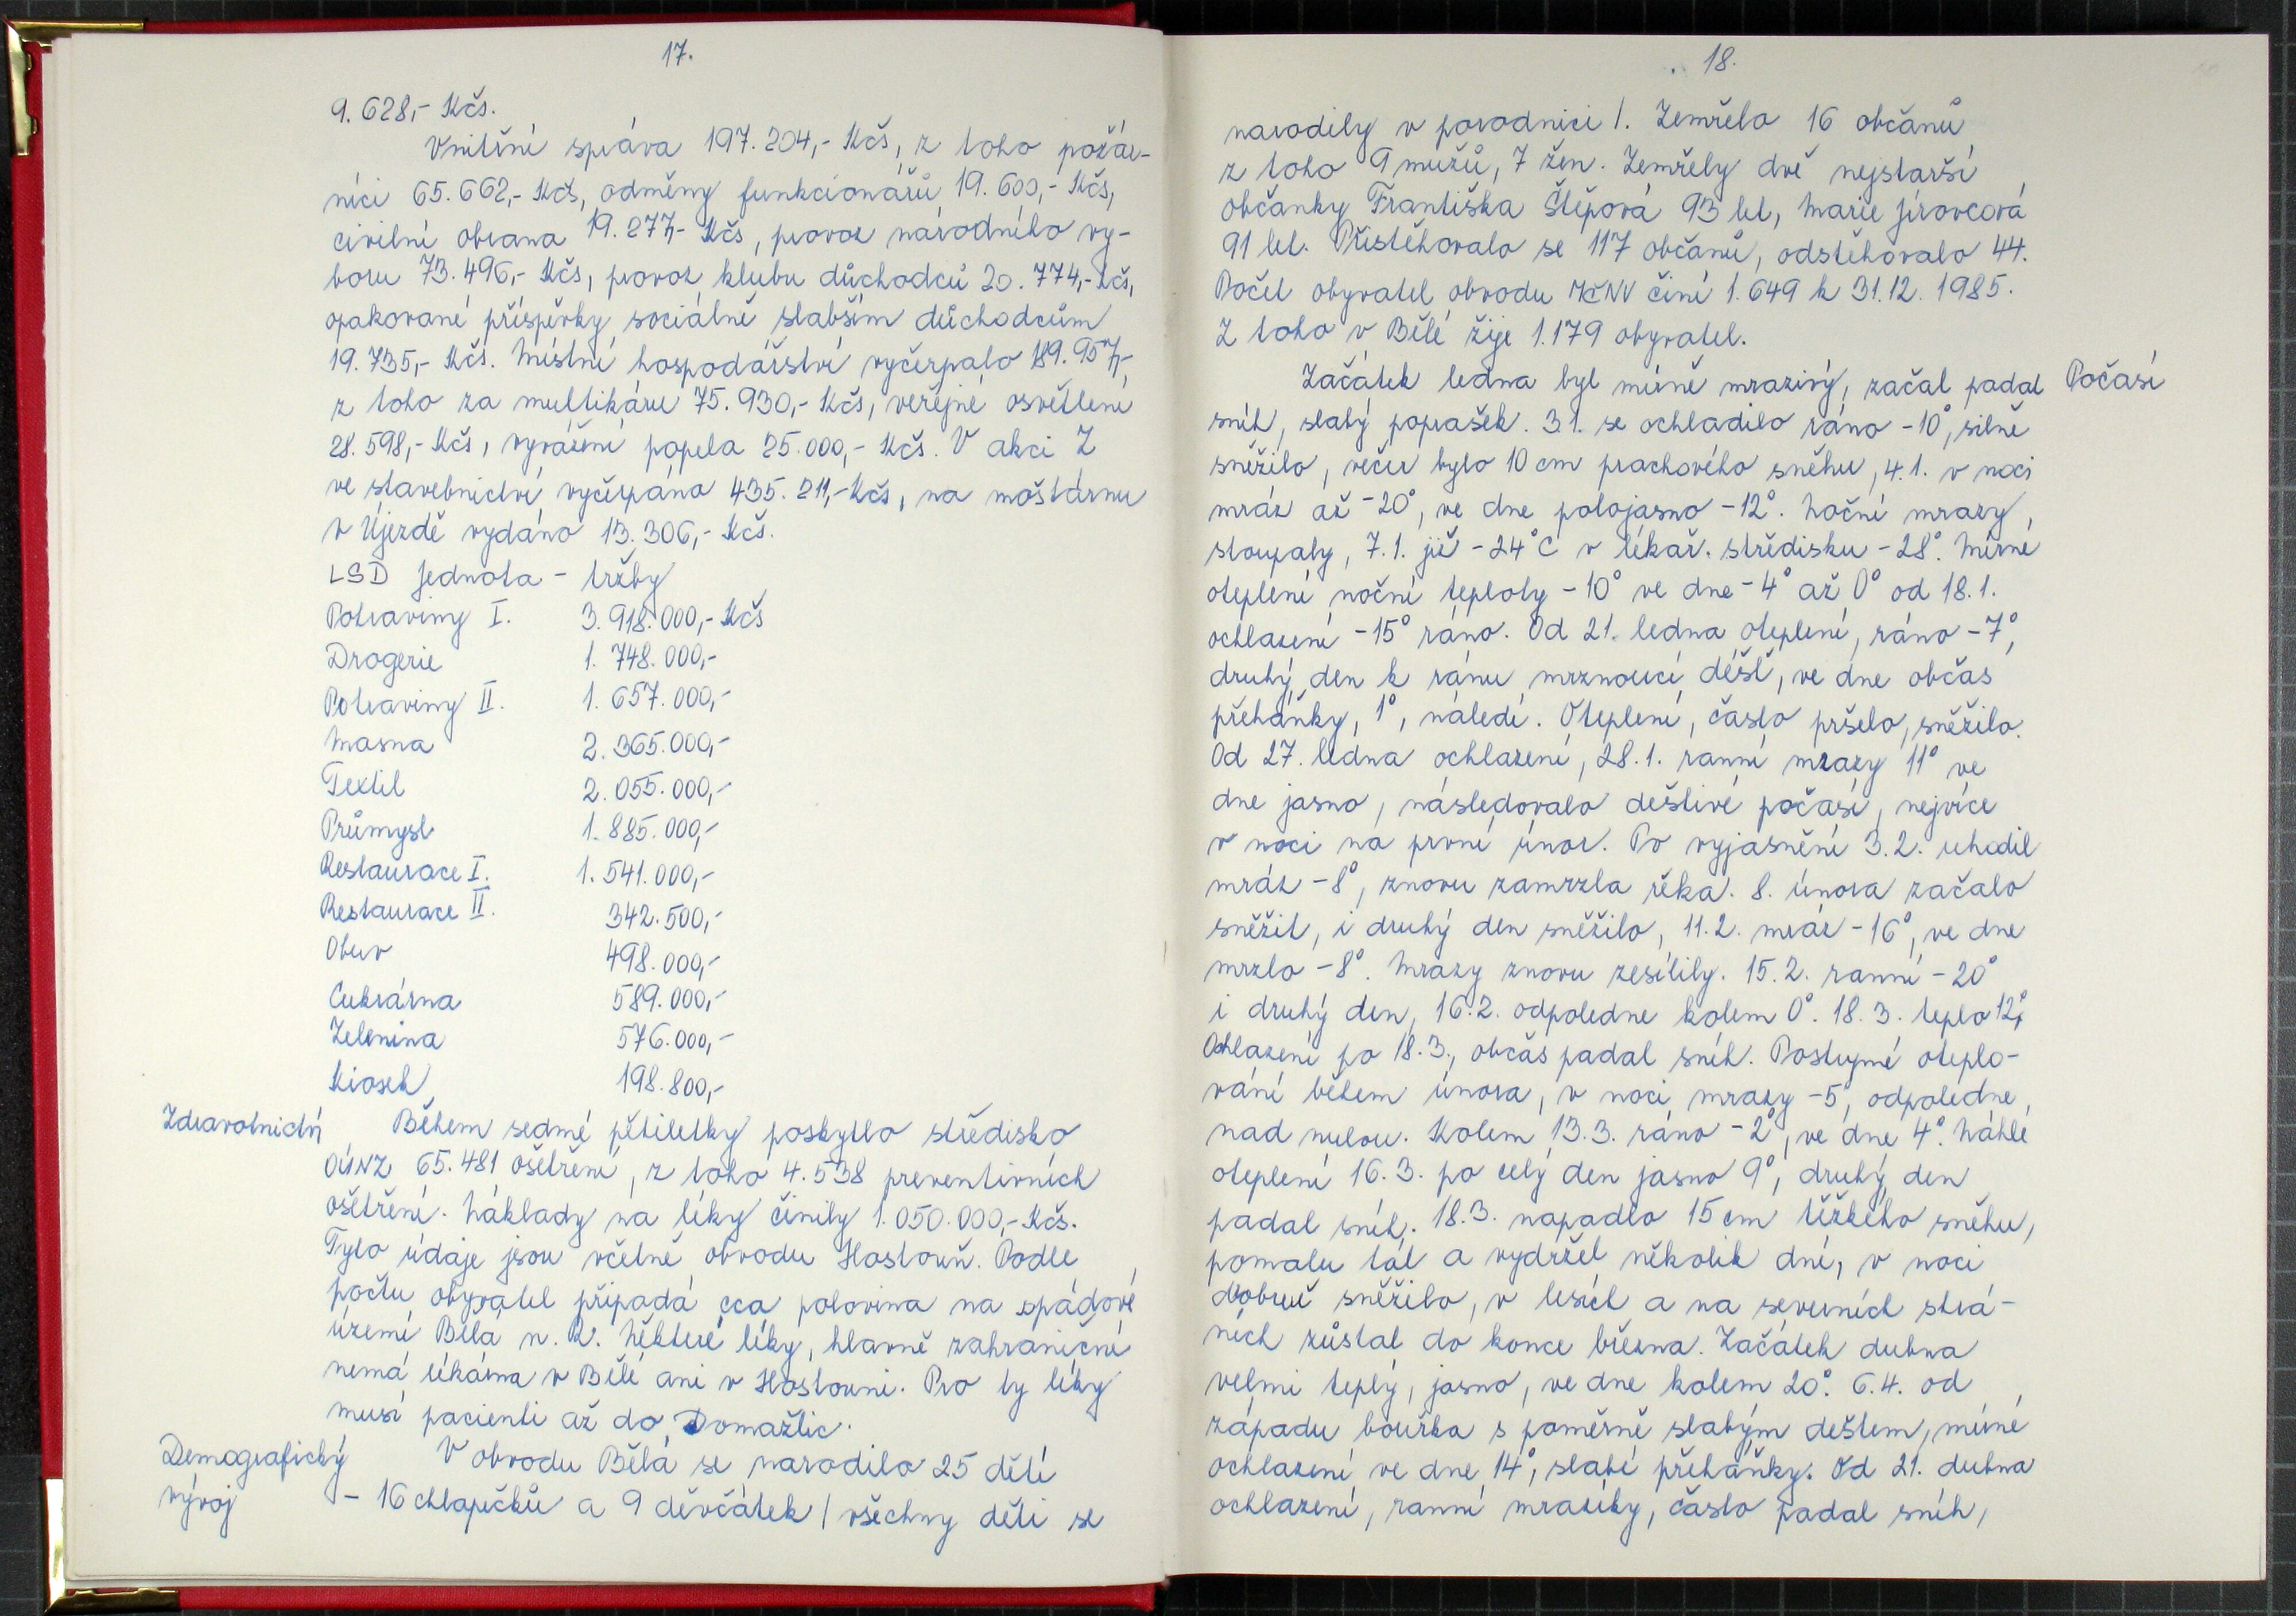 17.
9.628,- Kčs.
Vnitřní správa 197.204,- Kčs, z toho požár-
níci 65.662,- Kčs, odměny funkcionářů 19.600,- Kčs,
civilní obrana 19.277,- Kčs, provoz národního vý-
boru 73.496,- Kčs, provoz klubu důchodců 20.774,- Kčs,
opakované příspěvky sociálně slabším důchodcům
19.735,- Kčs. Místní hospodářství vyčerpalo 189.957,-
z toho za multikáru 75.930,- Kčs, veřejné osvětlení
28.598,- Kčs, vyvážení popela 25.000,- Kčs. V akci Z
ve stavebnictví vyčerpáno 435.211,- Kčs, na moštárnu
v Újezdě vydáno 13.306,- Kčs.
LSD Jednota - tržby
Potraviny I. 3.918.000,- Kčs
Drogerie 1.748.000,-
Potraviny II. 1.657.000,-
Masna 2.365.000,-
Textil 2.055.000,-
Průmysl 1.885.000,-
Restaurace I. 1.541.000,-
Restaurace II. 342.500,-
Obuv 498.000,-
Cukrárna 589.000,-
Zelenina 576.000,-
Kiosek 198.800,-
Zdravotnictví Během sedmé pětiletky poskytlo středisko
OÚNZ 65.481 ošetření, z toho 4.538 preventivních
ošetření. Náklady na léky činily 1.050.000,- Kčs.
Tyto údaje jsou včetně obvodu Hostouň. Podle
počtu obyvatel připadá cca polovina na spádové
území Bělá n. R. Některé léky, hlavně zahraniční
nemá lékárna v Bělé ani v Hostouni. Pro ty léky
musí pacienti až do Domažlic.
Demografický V obvodu Bělá se narodilo 25 dětí
vývoj - 16 chlapečků a 9 děvčátek / všechny děti se
18.
narodily v porodnici /. Zemřelo 16 občanů
z toho 9 mužů, 7 žen. Zemřely dvě nejstarší
občanky Františka Štěpová 93 let, Marie Jírovcová
91 let. Přistěhovalo se 117 občanů, odstěhovalo 44.
Počet obyvatel obvodu MNV činí 1.649 k 31.12. 1985.
Z toho v Bělé žije 1.179 obyvatel.
Začátek ledna byl mírně mrazivý, začal padat Počasí
sníh, slabý poprašek. 3.1. se ochladilo ráno -10°, silně
sněžilo, večer bylo 10 cm prachového sněhu, 4.1. v noci
mráz až -20°, ve dne polojasno -12°. Noční mrazy
stoupaly, 7.1. již -24°C v lékař. středisku -28°. Mírné
oteplení noční teploty -10° ve dne -4° až 0° od 18.1.
ochlazení -15° ráno. Od 21. ledna oteplení, ráno -7°,
druhý den k ránu mrznoucí déšť, ve dne občas
přeháňky, 1°, náledí. Oteplení, často pršelo, sněžilo.
Od 27. ledna ochlazení, 28.1. ranní mrazy 11° ve
dne jasno, následovalo deštivé počasí, nejvíce
v noci na první únor. Po vyjasnění 3.2. uhodil
mráz -8°, znovu zamrzla řeka. 8. února začalo
sněžit, i druhý den sněžilo, 11.2. mráz -16°, ve dne
mrzlo -8°. Mrazy znovu zesílily. 15.2. ranní -20°
i druhý den, 16.2. odpoledne kolem 0°. 18.3. teplo 12°,
Ochlazení po 18.3., občas padal sníh. Postupné oteplo-
vání během února, v noci mrazy -5°, odpoledne
nad nulou. Kolem 13.3. ráno -2°, ve dne 4°. Náhlé
oteplení 16.3. po celý den jasno 9°, druhý den
padal sníh. 18.3. napadlo 15 cm těžkého sněhu,
pomalu tál a vydržel několik dní, v noci
dobrně sněžilo, v lesích a na severních strá-
ních zůstal do konce března. Začátek dubna
velmi teplý, jasno, ve dne kolem 20°. 6.4. od
západu bouřka s poměrně slabým deštem, mírné
ochlazení ve dne 14°, slabé přeháňky. Od 21. dubna
ochlazení, ranní mrazíky, často padal sníh,